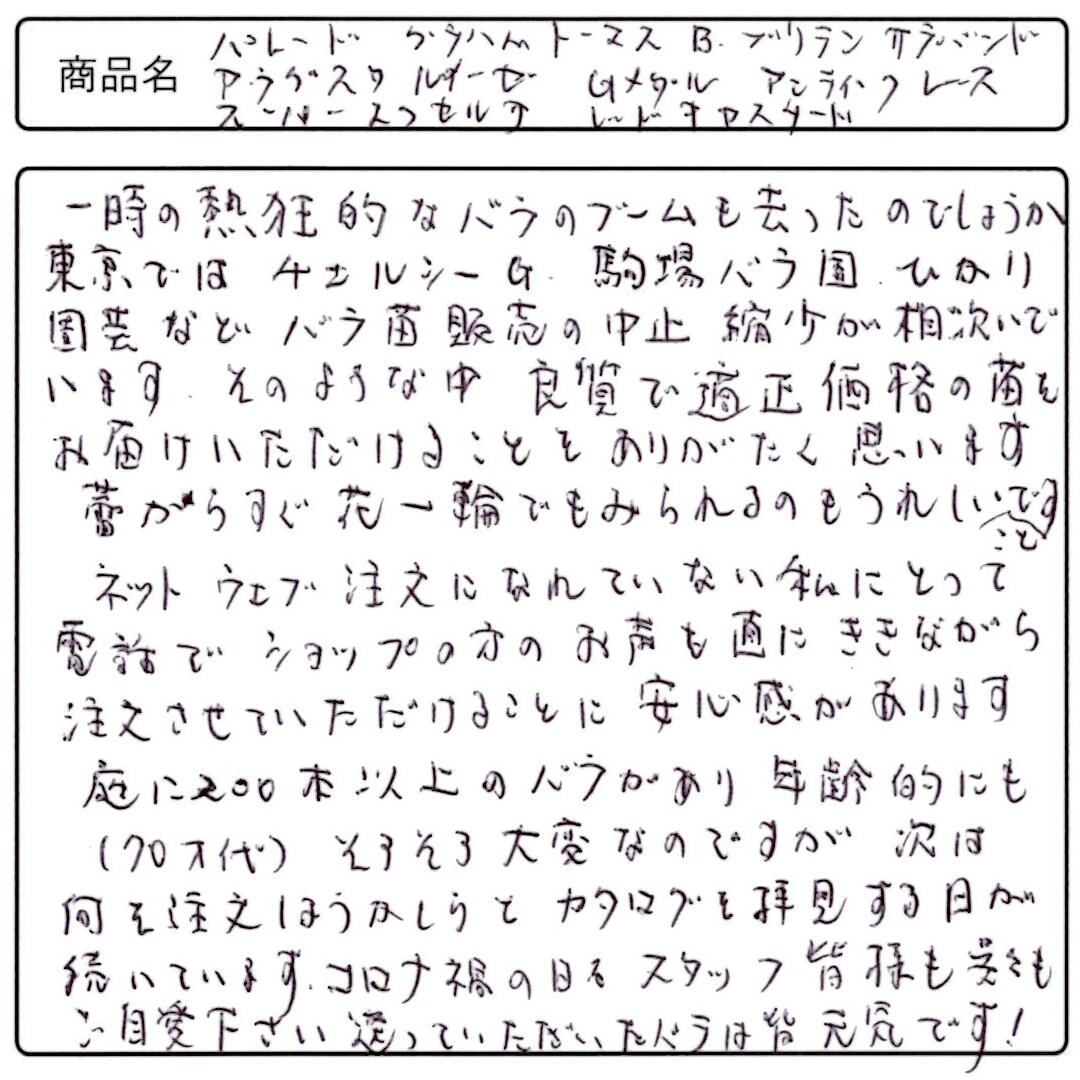 商品名
パレード グラハムトーマス B. ブリラン オラバンド
アラゲスタ ルイーゼ Gメダル アンティクレース
スーパーエクセルサ レッドキャスケード
一時の熱狂的なバラのブームも去ったのでしょうか
東京では チェルシーG. 駒場バラ園. ひかり
園芸など バラ苗販売の中止 縮少が相次いで
います. そのような中 良質で適正価格の苗を
お届けいただけることを ありがたく思います
蕾がらすぐ花一輪でもみられるのもうれしいことです
ネット ウェブ 注文になれていない私にとって
電話で ショップの方の お声を直にききながら
注文させていただけることに 安心感があります
庭に200本以上のバラがあり 年齢的にも
(70才代) そろそろ大変なのですが 次は
何を注文しようかしらと カタログを拝見する日が
続いています. コロナ禍の日々 スタッフ皆様も 呉々も
ご自愛下さい 送っていただいたバラは皆 元気です!